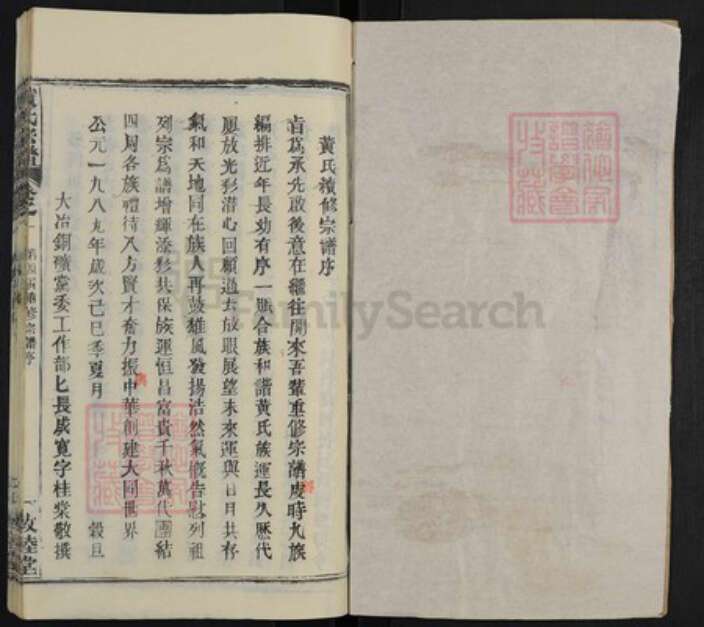 黃氏續修宗譜序
旨為承先啟後意在繼往開來吾輩重修宗譜度時九族
編排近年長幼有序一賬合族和諧黃氏族運長久歷代
愿放光彩潜心回顧過去放眼展望未來運與日月共存
氣和天地同在族人再鼓雄風發揚浩然氣慨告慰列祖
列宗爲譜增輝添彩共保族運恒昌富貴千秋萬代團結
四周各族禮待八方賢才奮力振中華創建大同世界
公元一九八九年歲次己巳季夏月 穀旦
大冶銅礦黨委工作部匕長成寬字桂棠敬撰
黃氏宗譜
卷之一
第四次續修宗譜序
敦睦堂
FamilySearch